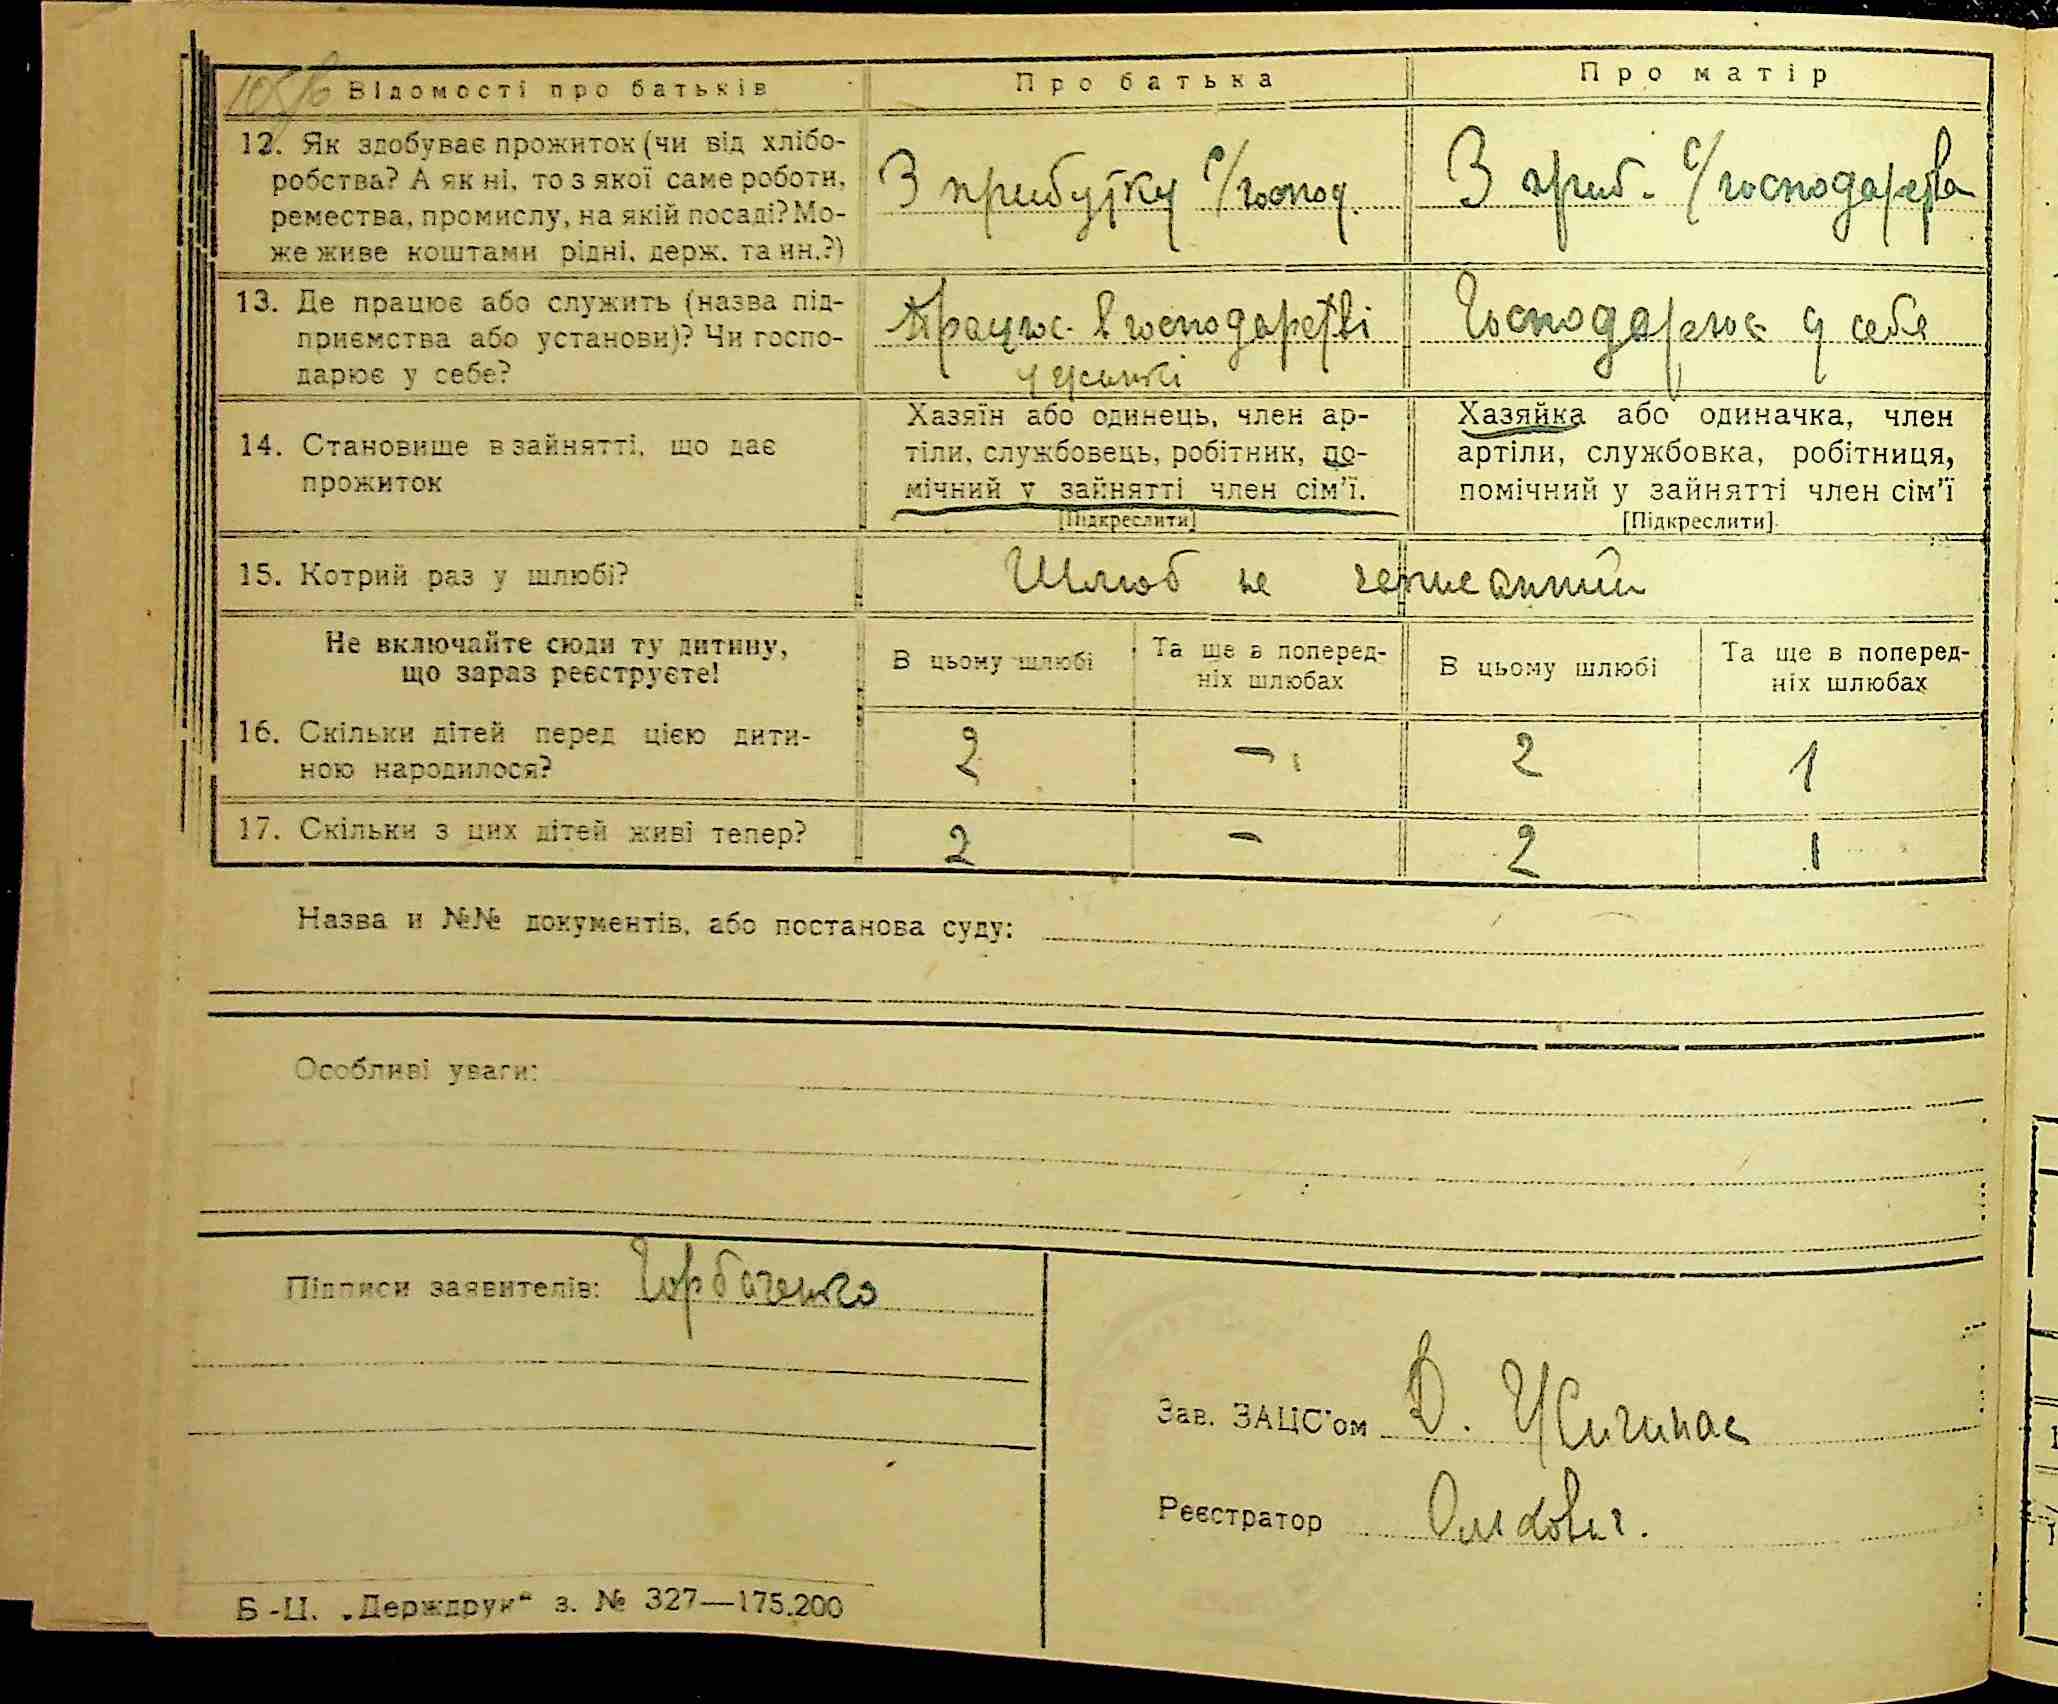 Відомості про батьків
Про батька
Про матір
12. Як здобуває прожиток (чи від хлібо-
робства? А як ні, то з якої саме роботи,
ремества, промислу, на якій посаді? Мо-
же живе коштами рідні, держ. та ин.?)
З прибутку с/господ.
З приб. с/господарства
13. Де працює або служить (назва під-
приємства або установи)? Чи госпо-
дарює у себе?
Працює в господарстві
у
Господарює у себе
14. Становище в зайнятті, що дає
прожиток
Хазяїн або одинець, член ар-
тіли, службовець, робітник, по-
мічний у зайнятті член сім'ї.
[Підкреслити]
Хазяйка або одиначка, член
артіли, службовка, робітниця,
помічний у зайнятті член сім'ї
[Підкреслити].
15. Котрий раз у шлюбі?
Шлюб не
Не включайте сюди ту дитину,
що зараз реєструєте!
В цьому шлюбі
Та ще в поперед-
ніх шлюбах
В цьому шлюбі
Та ще в поперед-
ніх шлюбах
16. Скільки дітей перед цією дити-
ною народилося?
2
–
2
1
17. Скільки з цих дітей живі тепер?
2
–
2
1
Назва и №№ документів, або постанова суду:
Особливі уваги:
Підписи заявителів: Горбаченко
Зав. ЗАЦС'ом Д.
Реєстратор
Б-Ц. „Держдрук“ з. № 327—175.200